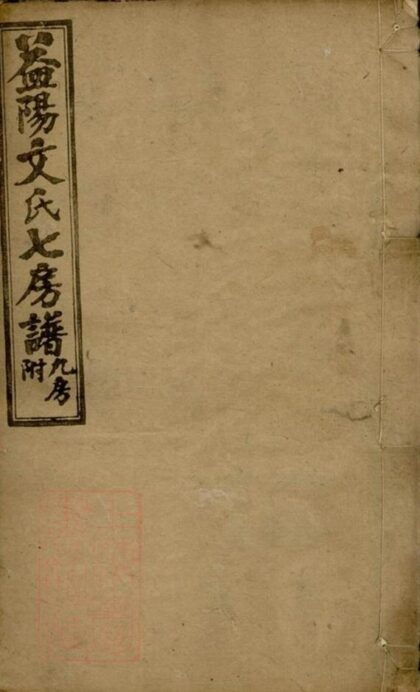 益陽文氏七房譜
九房
附